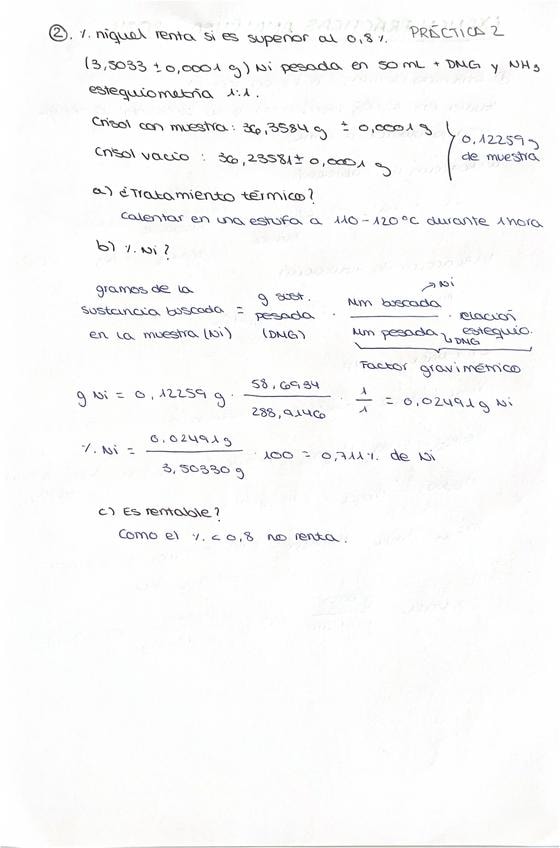 ② . % niquel renta si es superior al 0,8 %. PRÁCTICA 2
(3,5033 ± 0,0001 g) Ni pesada en 50 mL + DMG y NH3
estequiometría 1:1.
Crisol con muestra: 36,3584 g ± 0,0001 g
Crisol vacio : 36,23581 ± 0,0001 g
0,12259 g
de muestra
a) ¿Tratamiento térmico?
Calentar en una estufa a 110-120 °C durante 1 hora
b) % Ni?
gramos de la
sustancia buscada =
en la muestra (Ni)
g sust.
pesada
(DMG)
· Mm buscada → Ni
Mm pesada ↳ DMG
· relación
estequio.
Factor gravimétrico
g Ni = 0,12259 g · 58,6934 / 288,9146 · 1/1 = 0,02491 g Ni
% Ni = 0,02491 g / 3,50330 g · 100 = 0,711 % de Ni
c) Es rentable?
Como el % < 0,8 no renta.